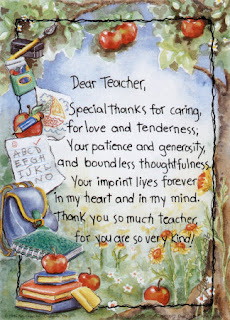 Dear Teacher,
Special thanks for caring,
for love and tenderness;
Your patience and generosity,
and boundless thoughtfulness
Your imprint lives forever
in my heart and in my mind.
Thank you so much teacher,
for you are so very kind!
A B C D
E F G H
I J K L
N O